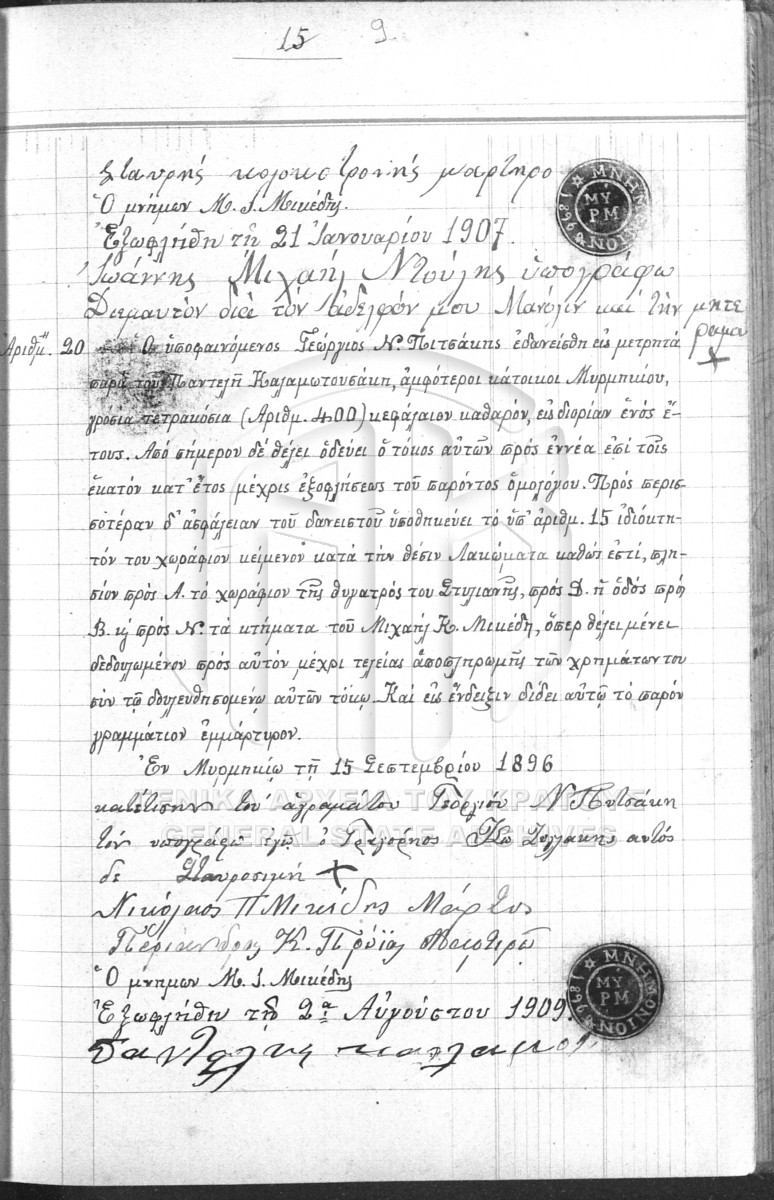 15 9
Σταυρής κολοκοτρονής μαρτηρο
Ὁ μνήμων Μ. Ι. Μικέδης.
Ἐξωφλήθη τῇ 21 Ἰανουαρίου 1907.
Ἰωάννης Μιχαήλ Ντούλης ὑπογράφω
Διεμαυτὸν διὰ τὸν ἀδελφόν μου Μανόλιν καὶ τὴν μητε
ραμου +
Ἀριθμ. 20 Ὁ ὑποφαινόμενος Γεώργιος Ν. Πιτσάκης ἐδανείσθη εἰς μετρητά
παρὰ τοῦ Παντελῆ Καλαμωτουσάκη, ἀμφότεροι κάτοικοι Μυρμηκίου,
γρόσια τετρακόσια (Ἀριθμ. 400) κεφάλαιον καθαρόν, εἰς διορίαν ἑνός ἔ-
τους. Ἀπό σήμερον δέ θέλει ὁδεύει ὁ τόκος αὐτῶν πρός ἐννέα ἐπί τοῖς
ἑκατόν κατ' ἔτος μέχρις ἐξοφλήσεως τοῦ παρόντος ὁμολόγου. Πρός περισ-
σοτέραν δ' ἀσφάλειαν τοῦ δανειστοῦ ὑποθηκεύει τό ὑπ' ἀριθμ. 15 ἰδιόκτη-
τόν του χωράφιον κείμενον κατά τήν θέσιν Λακώματα καθώς ἐστί, πλη-
σίον πρὸς Α. τό χωράφιον τῆς θυγατρός του Στυλιανῆς, πρός Δ. ἡ ὁδός πρός
Β. κ͛ πρός Ν. τά κτήματα τοῦ Μιχαήλ Κ. Μικέδη, ὅπερ θέλει μένει
δεδουλωμένον πρός αὐτόν μέχρι τελείας ἀποπληρωμῆς τῶν χρημάτων του
σύν τῷ δουλευθησομένῳ αὐτῶν τόκῳ. Καί εἰς ἔνδειξιν δίδει αὐτῷ τό παρόν
γραμμάτιον ἐμμάρτυρον.
Ἐν Μυρμηκίῳ τῇ 15 Σεπτεμβρίου 1896
κατέτισην του ἀγραματου Γεοργίου Ν Πιτσάκη
τόν υπογράφω ἐγῶ ὁ Γρηγόρηος Κω αυτός
δε Σταυροσιμή +
Νικόλαος Π Μικίδης Μάρτυς
Περίανδρος Κ. Πρόιας Μαρτιρῶ
Ὁ μνήμων Μ. Ι. Μικέδης
Ἐξωφλήθη τῇ 2ᾳ Αὐγούστου 1909.
Παντελης καλαμοτ.
ΜΝΗΜΟΝΙΟΝ 1889
ΜΥ
ΡΜ
ΜΝΗΜΟΝΙΟΝ 1889
ΜΥ
ΡΜ
ΓΕΝΙΚΑ ΑΡΧΕΙΑ ΤΟΥ ΚΡΑΤΟΥΣ
GENERAL STATE ARCHIVES